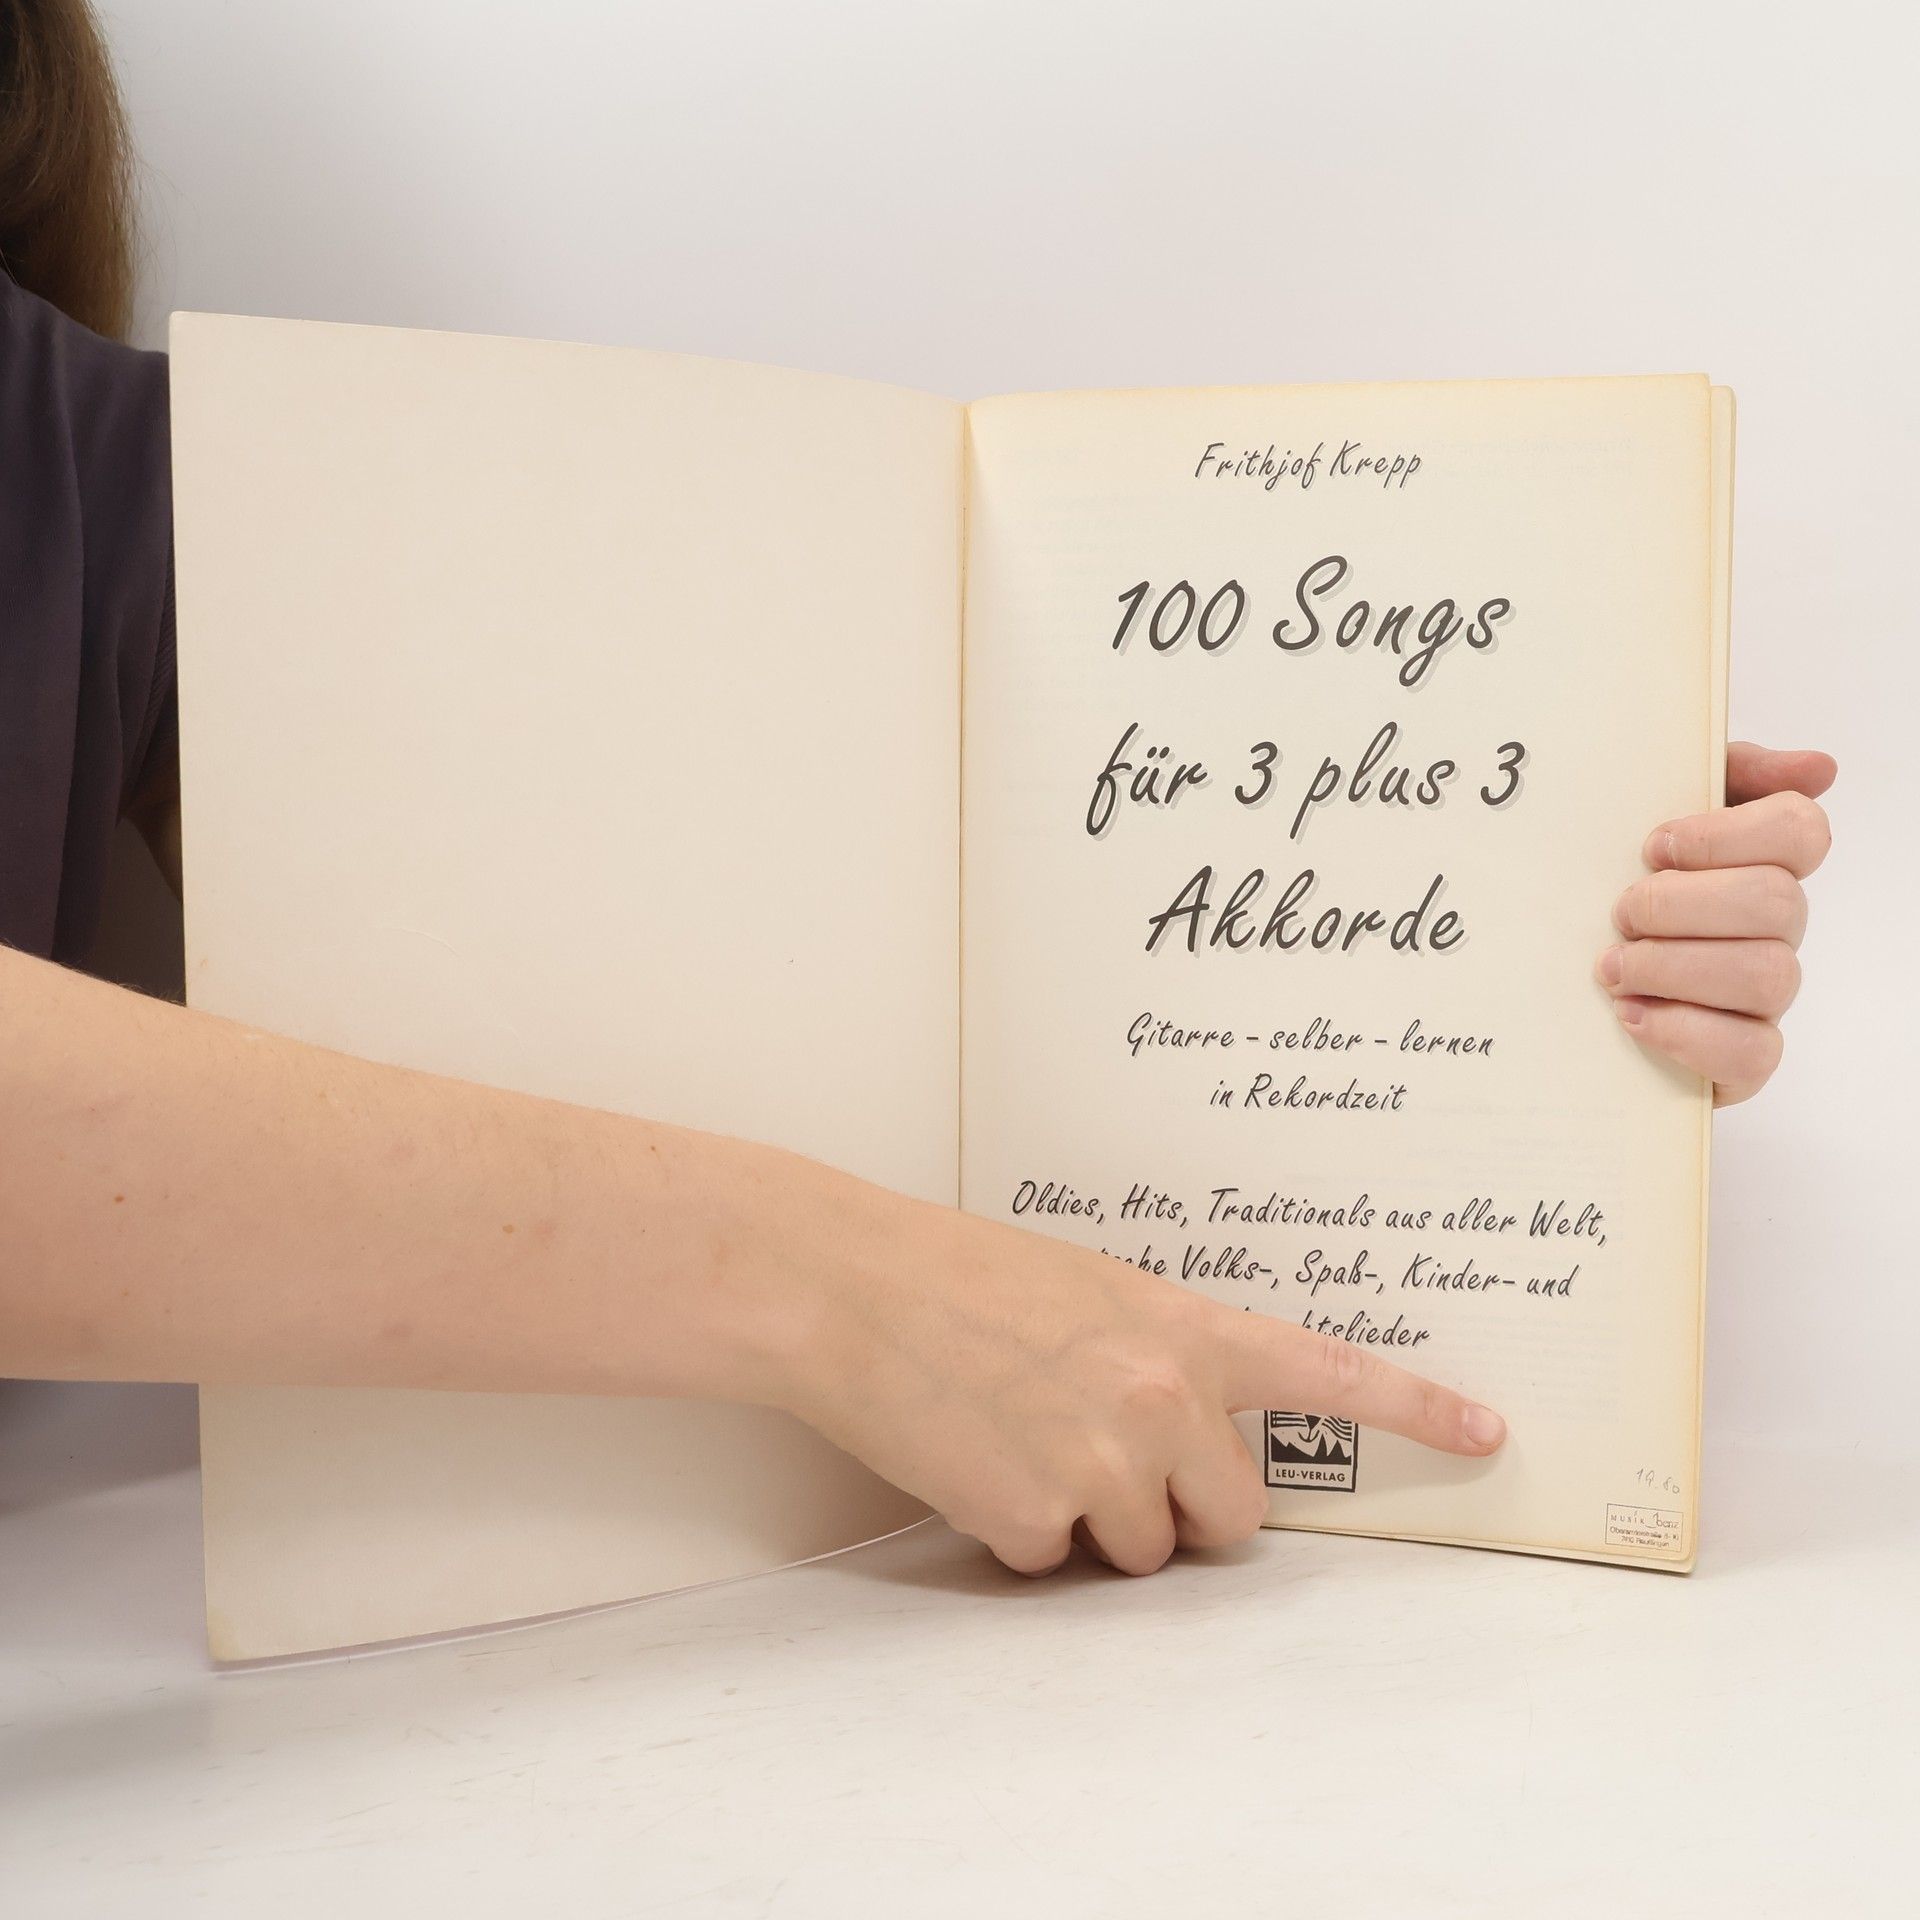 Frithjof Krepp
100 Songs
für 3 plus 3
Akkorde
Gitarre - selber - lernen
in Rekordzeit
Oldies, Hits, Traditionals aus aller Welt,
Volks-, Spaß-, Kinder- und
LEU-VERLAG
MUSIK